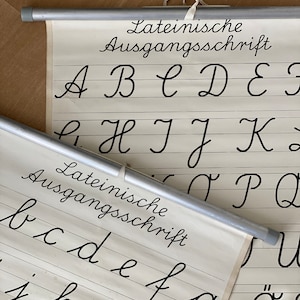 Lateinische
Ausgangsschrift
A B C D E F
G H I J K L
O P Q
U
Lateinische
Ausgangsschrift
b c d e f